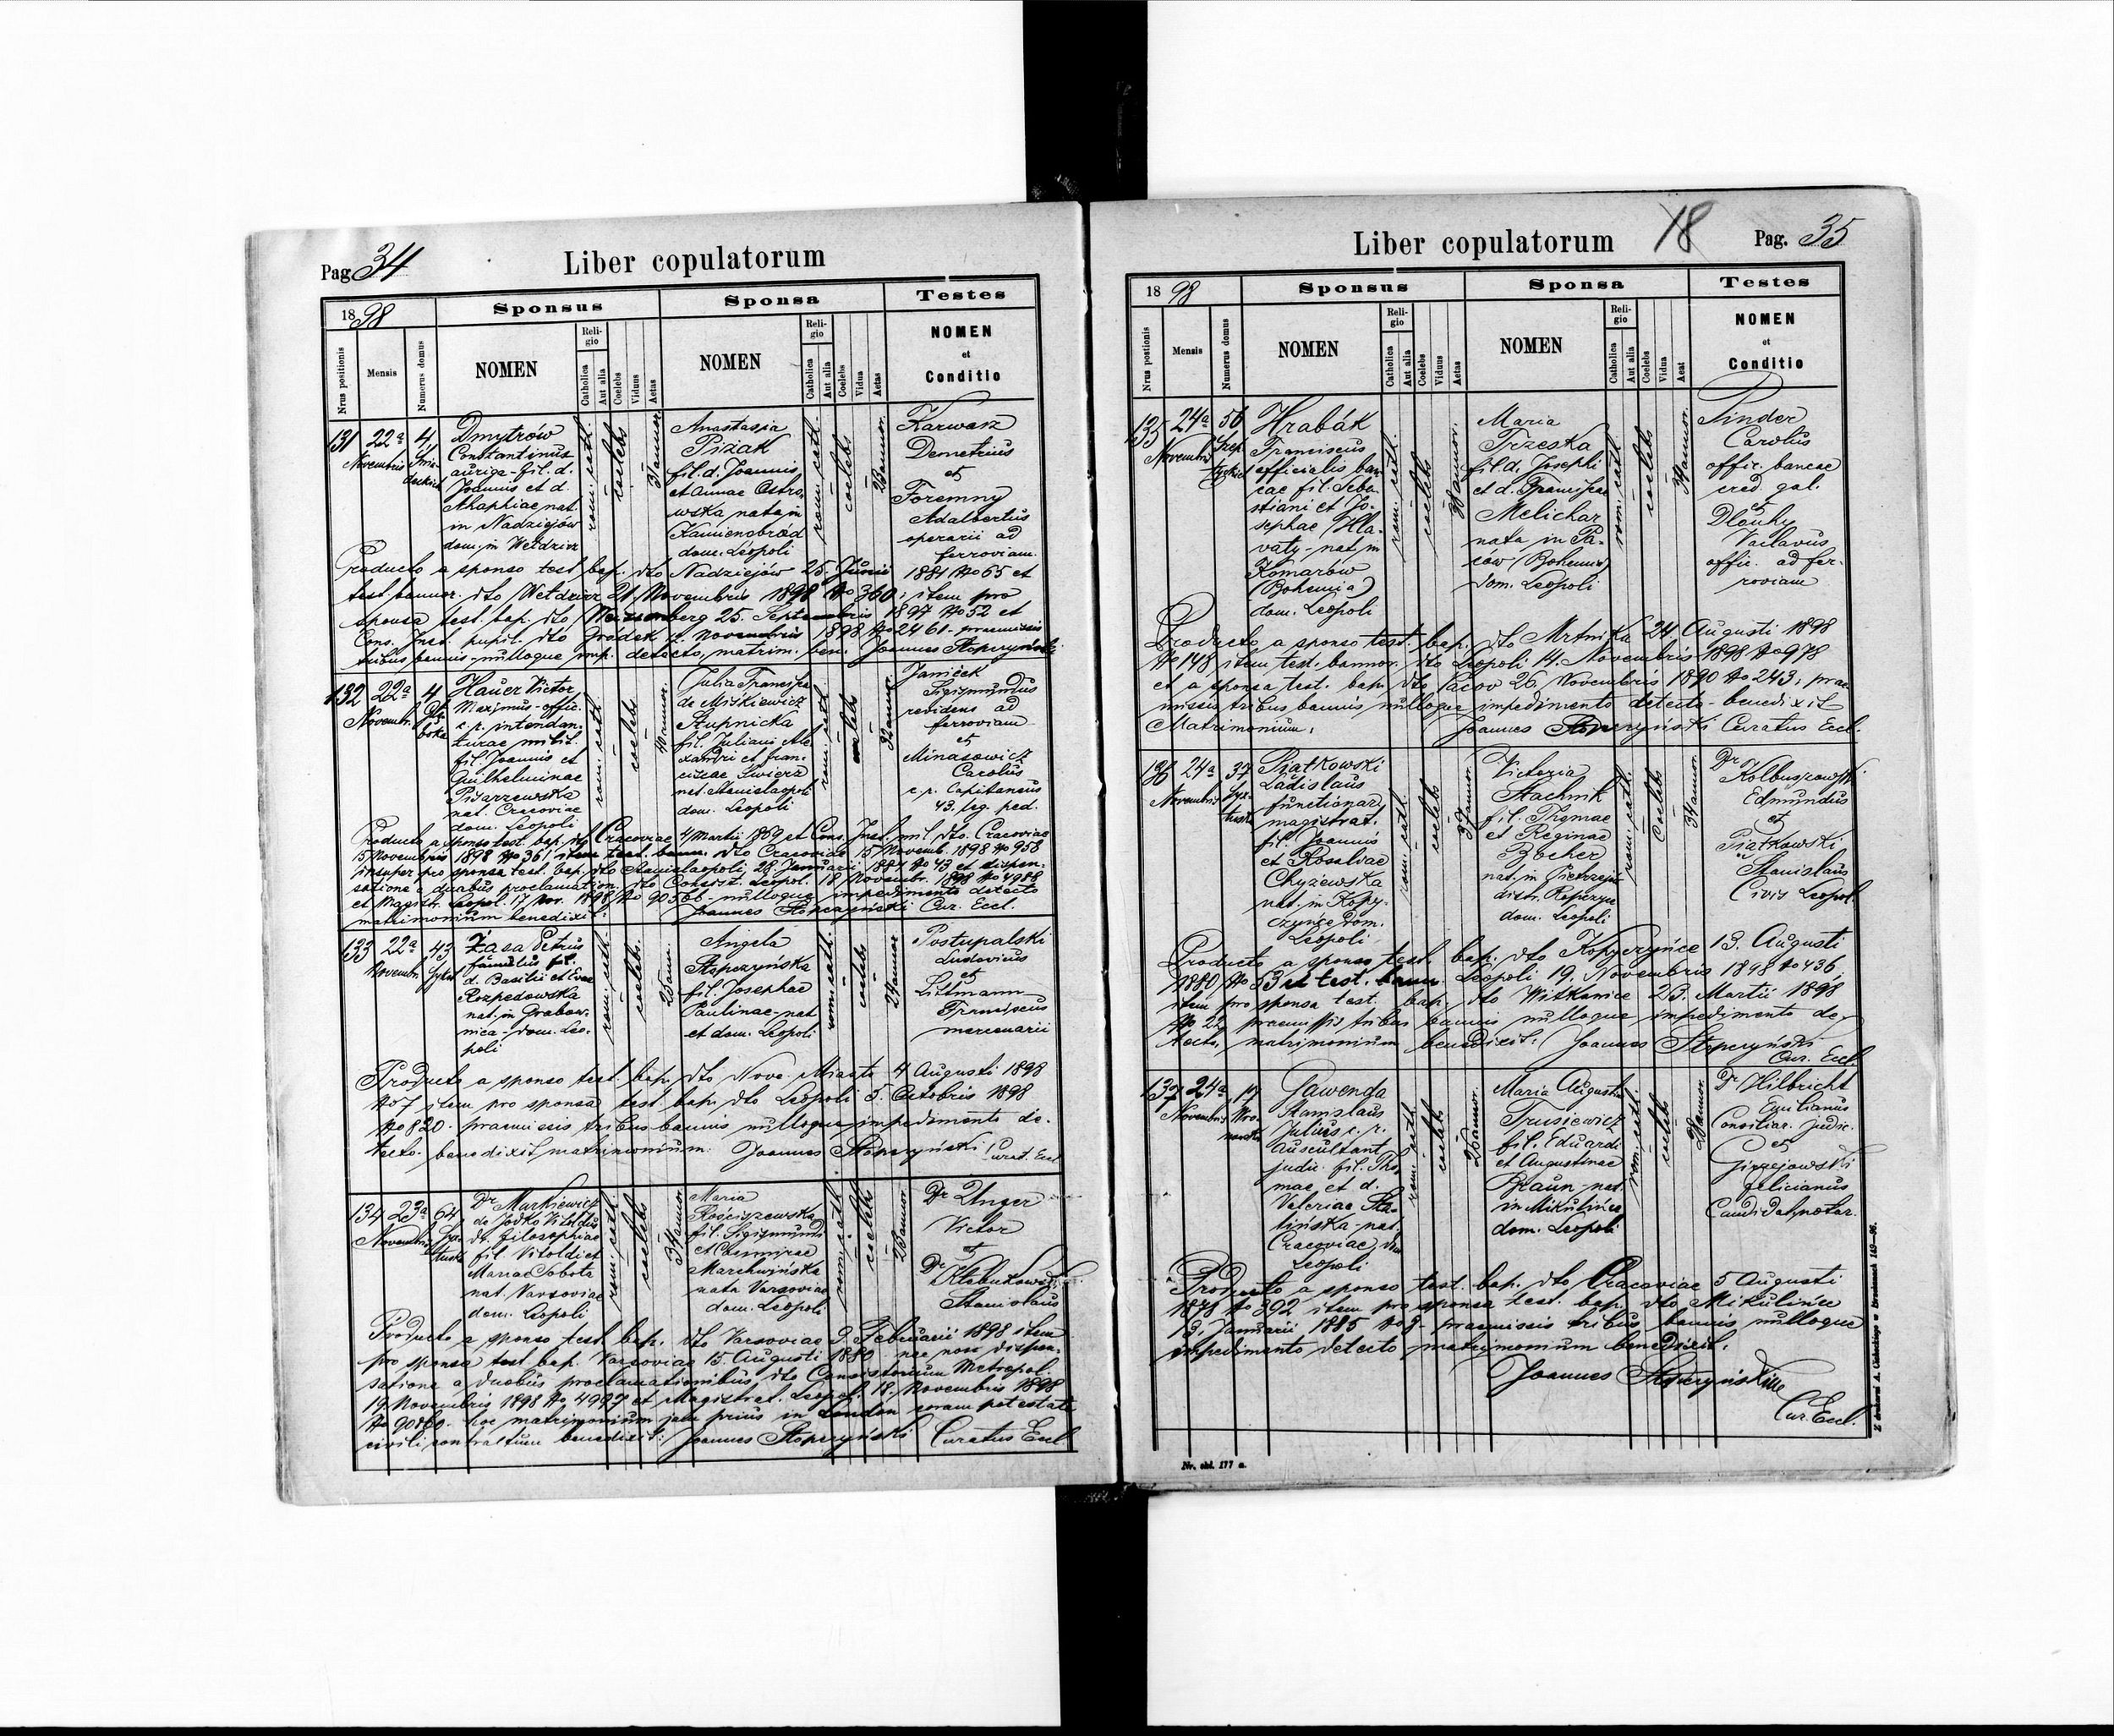 Pag. 34
Liber copulatorum
1898
Sponsus
Sponsa
Testes
Nrus positionis
Mensis
Numerus domus
NOMEN
Religio
Catholica
Aut alia
Coelebs
Viduus
Aetas
NOMEN
Religio
Catholica
Aut alia
Coelebs
Vidua
Aetas
NOMEN
et
Conditio
131
22a
Novembris
4
Dmytrów
Constantinus
auriga - fil. d.
Joannis et d.
Ahaphiae nat.
in Nadziejów
dom. in Wełdzirz
rom. cath.
coelebs
Anastasia
Piżak
fil. d. Joannis
et Annae Ostro-
wska nata in
Kamienobród
dom. Leopoli
rom. cath.
coelebs
23 annor.
Karwasz
Demetrius
et
Foremny
Adalbertus
operarii ad
ferroviam.
Producto a sponso test. bap. dto Nadziejów 25. Junii 1881 No 65 et
test. bannor. dto Wełdzirz 21 Novembris 1898 No 360; item pro
sponsa test. bap. dto Weissenberg 25. Septembris 1897 No 52 et
Cons. Inst. pupil. dto Gródek Novembris 1898 No 2461 - praemissis
tribus bannis - nulloque imp. detecto, matrim. ben. Joannes Stopczyński
132
22a
Novembr.
4
Hauer Victor
Maximus - offic.
c. r. intendan-
turae milit.
fil. Joannis et
Guilhelminae
Pisarzewska
nat. Cracoviae
dom. Leopoli
rom. cath.
coelebs
40 annor.
Julia Francisca
de Miśkiewicz
Stupnicka
fil. Juliani Ale-
xandri et Fran-
ciscae Świerz
nat. Stanislaopoli
dom. Leopoli
rom. cath.
coelebs
32 annor.
Janiček
Sigismundus
revidens ad
ferroviam
et
Minasowicz
Carolus
c. r. Capitaneus
43. leg. ped.
Producto a sponso test. bap. dto Cracoviae 4 Martii 1869 et Cons. Inst. mil. dto. Cracoviae
15 Novembris 1898 No 36; item test. bann. dto Cracoviae 15 Novemb. 1898 No 958
insuper pro sponsa test. bap. dto Stanislaopoli, 28 Januarii 1884 No 43 et dispen-
satione a duabus proclamation. dto Consist. Leopol. 18 Novembr. 1898 No 4988
et Magistr. Leopol. 17 Nov. 1898 No 90566 - nulloque impedimento detecto
matrimonium benedixi: Joannes Stopczyński Cur. Eccl.
133
22a
Novembr.
43
Zasa Petrus
famulus fil.
d. Basilii et Evae
Rozpędowska
nat. in Grabow-
nica - dom. Leo-
poli
rom. cath.
coelebs
25 ann.
Angela
Stopczyńska
fil. Josephae
Paulinae - nat.
et dom. Leopoli
rom. cath.
coelebs
24 annor.
Postupalski
Ludovicus
et
Littmann
Franciscus
mercenarii
Producto a sponso test. bap. dto Nove Miasto 4 Augusti 1898
No 7 item pro sponsa test. bap. dto Leopoli 5. Octobris 1898
No 820 - praemissis tribus bannis nulloque impedimento de-
tecto - benedixit matrimonium: Joannes Stopczyński Curat. Eccl.
134
23a
Novembris
64
Dr Markiewicz
de Jodko Vitoldus
dr. filosophiae
fil. Vitoldi et
Mariae Sobota
nat. Varsoviae
dom. Leopoli
rom. cath.
coelebs
34 annor.
Maria
Rościszewska
fil. Sigismundi
et Casimirae
Marchwińska
nata Varsoviae
dom. Leopoli
rom. cath.
coelebs
28 annor.
Dr Unger
Victor
et
Dr
Kłobukowski
Stanislaus
Producto a sponso test. bap. dto Varsoviae 9. Februarii 1898 item
pro sponsa test. bap. Varsoviae 15. Augusti 1880 nec non dispen-
satione a duobus proclamationibus dto Consistorium Metropol.
19 Novembris 1898 No 4997 et Magistrat. Leopol. 18. Novembris 1898
No 90860 - hoc matrimonium jam prius in London coram potestate
civili contractum benedixit: Joannes Stopczyński Curatus Eccl.
Liber copulatorum
18
Pag. 35
1898
Sponsus
Sponsa
Testes
Nrus positionis
Mensis
Numerus domus
NOMEN
Religio
Catholica
Aut alia
Coelebs
Viduus
Aetas
NOMEN
Religio
Catholica
Aut alia
Coelebs
Vidua
Aetat
NOMEN
et
Conditio
135
24a
Novembris
56
Hrabák
Franciscus
officialis ban-
cae fil. Seba-
stiani et Jo-
sephae Hla-
vaty - nat. in
Komarów
(Bohemia)
dom. Leopoli
rom. cath.
coelebs
38 annor.
Maria
Trzeska
fil. d. Josephi
et d. Franciscae
Melichar
nata in Pa-
ców (Bohemia)
dom. Leopoli
rom. cath.
coelebs
Pinder
Carolus
offic. bancae
cred. gal.
et
Dlouhy
Vaclavus
offic. ad fer-
roviam
Producto a sponso test. bap. dto Mrtnik 24 Augusti 1898
No 148, item test. bannor. dto Leopoli 14. Novembris 1898 No 978
et a sponsa test. bap. dto Pacov 26. Novembris 1890 No 243; prae-
missis tribus bannis nulloque impedimento detecto - benedixit
Matrimonium: Joannes Stopczyński Curatus Eccl.
136
24a
Novembris
37
Piątkowski
Ladislaus
functionar.
magistrat.
fil. Joannis
et Rosaliae
Chyżewska
nat. in Kopy-
czyńce dom.
Leopoli
rom. cath.
coelebs
37 annor.
Victoria
Stachnik
fil. Thomae
et Reginae
Bocher
nat. in Pietrzejo
distr. Ropczyce
dom. Leopoli
rom. cath.
Coelebs
34 annor.
Dr
Kolbuszowski
Edmundus
et
Piątkowski
Stanislaus
Civis Leopol.
Producto a sponso test. bap. dto Kopyczyńce 13. Augusti
1880, No 63 et test. bann. Leopoli 19. Novembris 1898 No 436,
item pro sponsa test. bap. dto Witkowice 23. Martii 1898
No 22, praemissis tribus bannis nulloque impedimento de-
tecto, matrimonium benedixit: Joannes Stopczyński
Cur. Eccl.
137
24a
Novembris
17
Gawenda
Stanislaus
Julius c. r.
Auscultant
judic. fil. Tho-
mae et d.
Valeriae Sta-
lińska - nat.
Cracoviae, dom.
Leopoli
rom. cath.
coelebs
26 annor.
Maria Augusta
Trusiewicz
fil. Eduardi
et Augustinae
Braun - nat.
in Mikulińce
dom. Leopoli
rom. cath.
coelebs
Dr Hilbricht
Emilianus
Consiliar. Judic.
et
Gizejowski
felicianus
Candidat. notar.
Producto a sponso test. bap. dto Cracoviae 5 Augusti
1878 No 392 item pro sponsa test. bap. dto Mikulińce
13. Januarii 1885 No 9 - praemissis tribus bannis nulloque
impedimento detecto matrimonium benedixit:
Joannes Stopczyński
Cur. Eccl.
Nr. obl. 177 a.